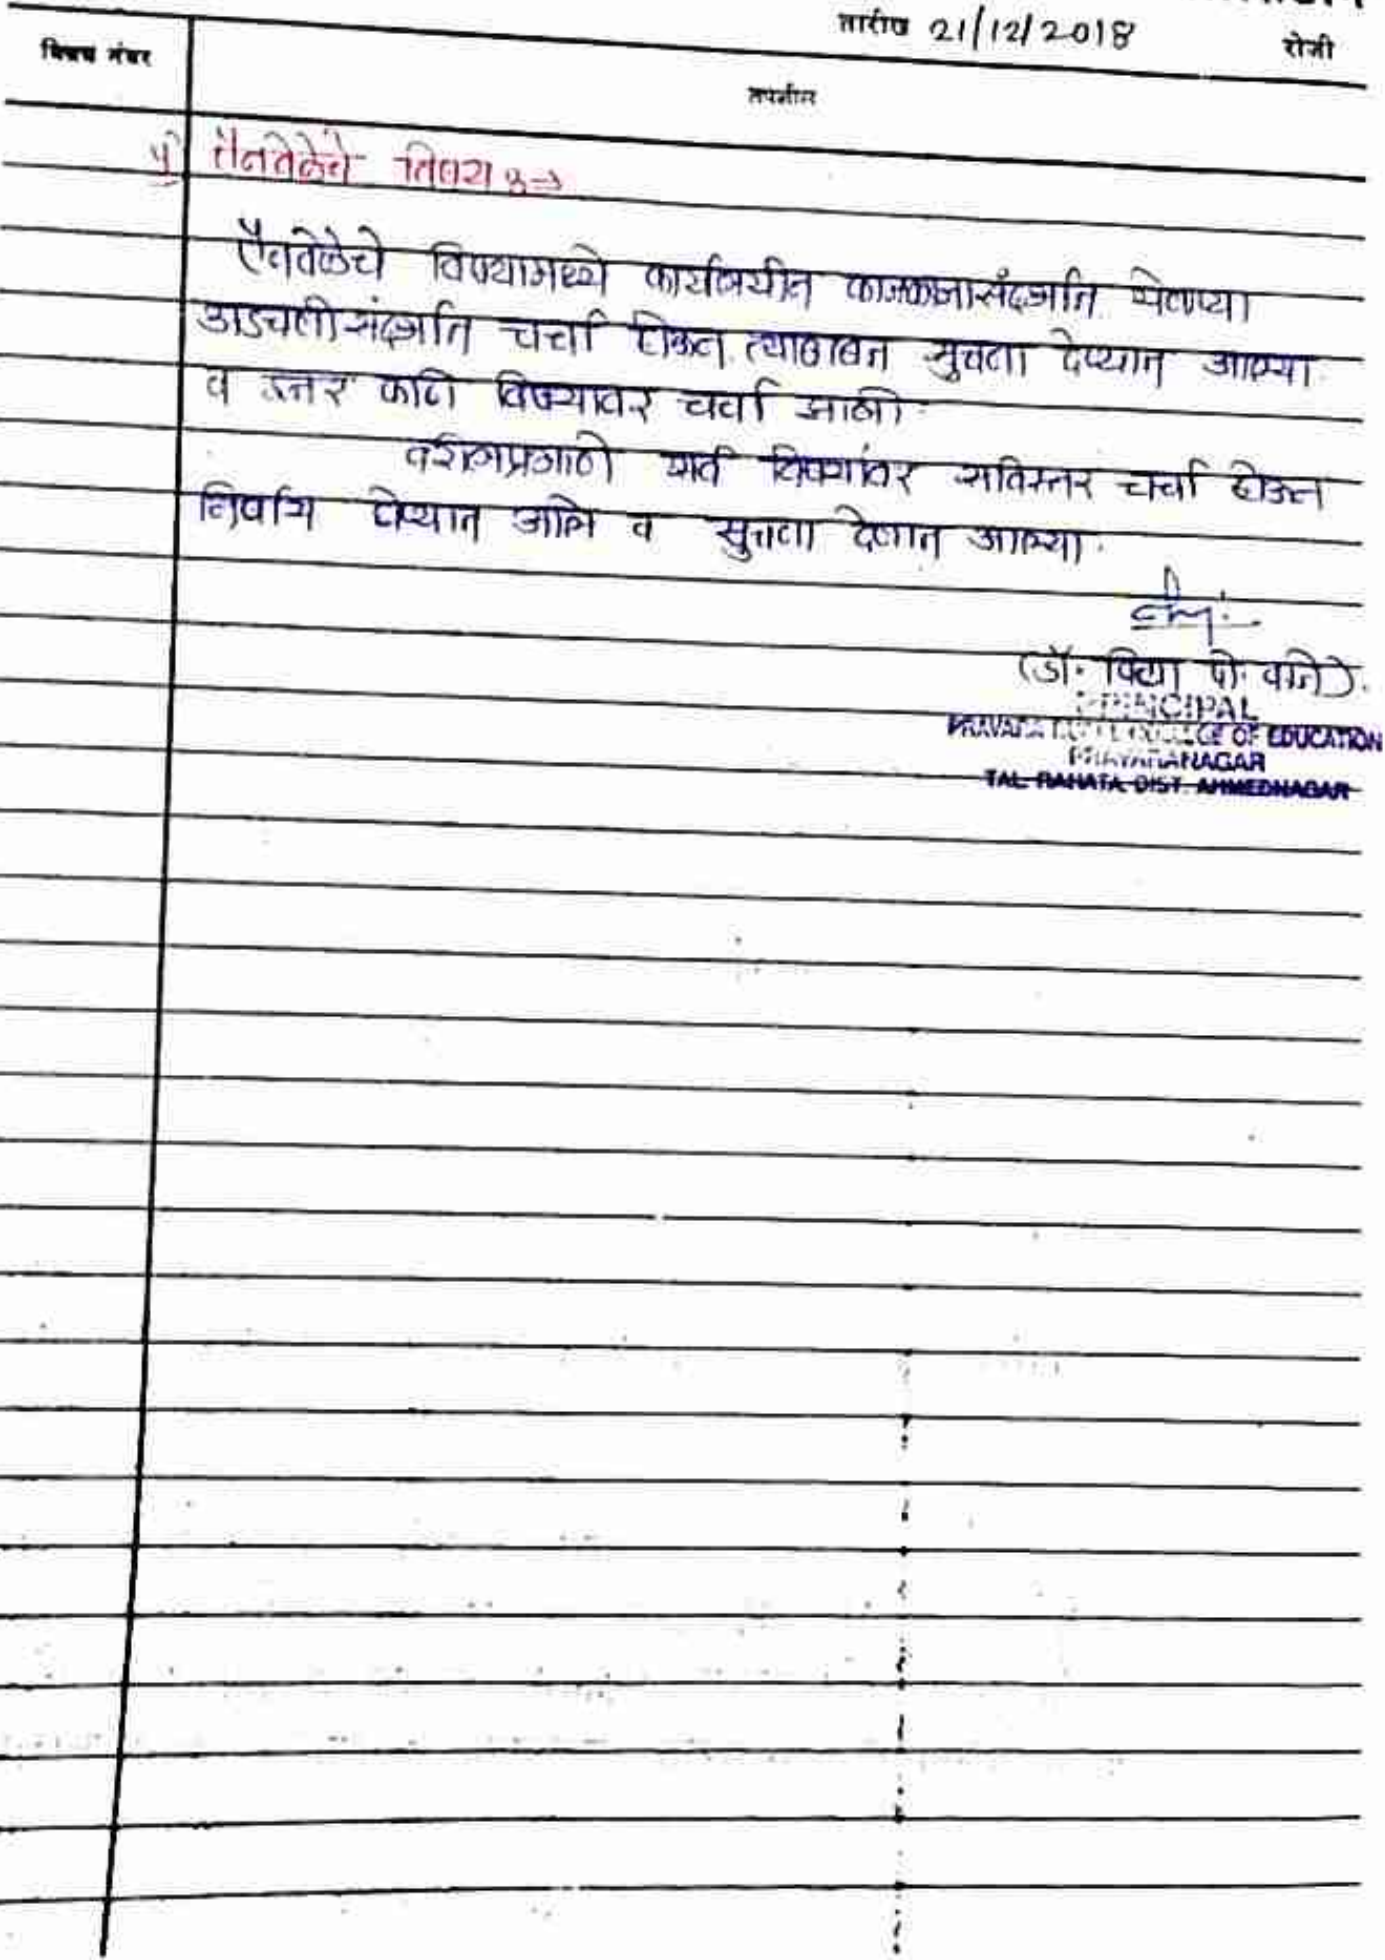 तारीख 21/12/2018 रोजी
विषय नंबर
तपशील
५) ऐनवेळेचे विषय :→
ऐनवेळेचे विषयामध्ये कार्यालयीन कामकाजासंदर्भात येणाऱ्या
अडचणी संदर्भात चर्चा होऊन त्याबाबत सुचना देण्यात आल्या
व इतर काही विषयावर चर्चा झाली.
वरीलप्रमाणे सर्व विषयांवर सविस्तर चर्चा होऊन
निर्णय घेण्यात आले व सुचना देणात आल्या.
(डॉ. विद्या
PRINCIPAL
COLLEGE OF EDUCATION
PRAVARANAGAR
TAL. RAHATA, DIST. AHMEDNAGAR